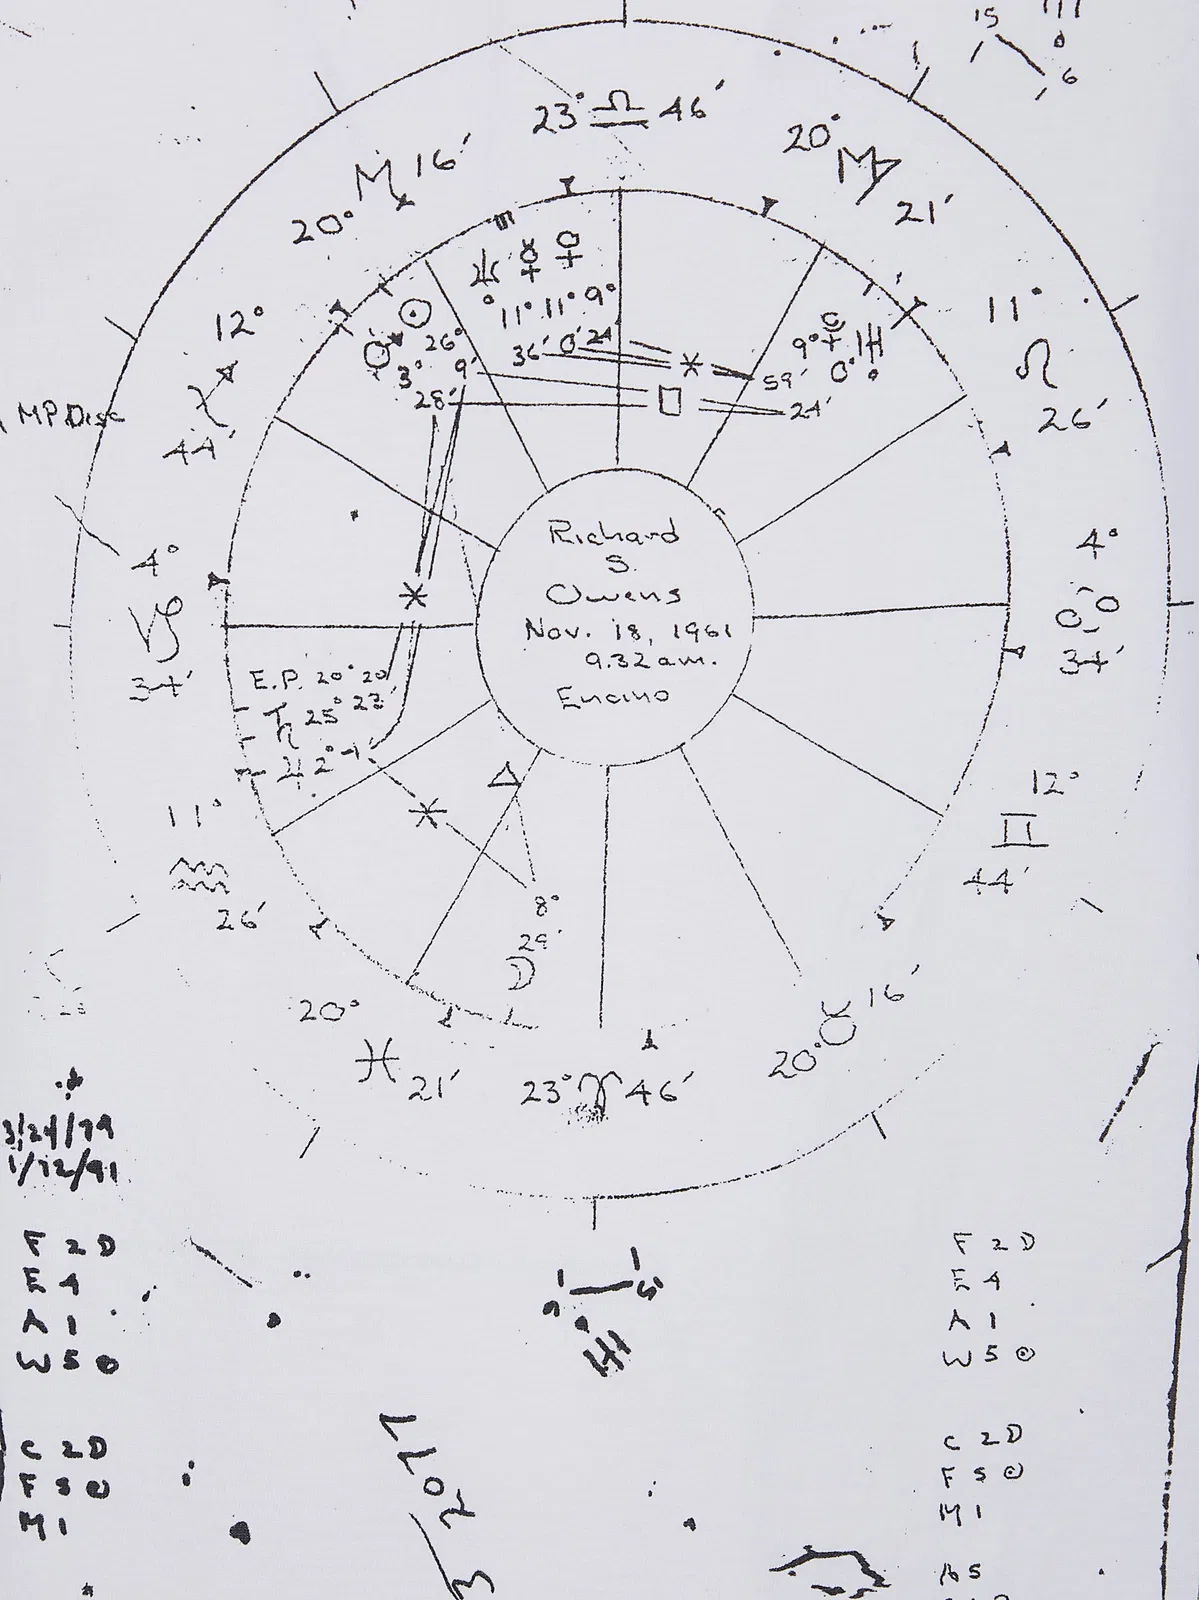 15
6
23° ♎ 46′
20° ♍ 21′
♏ 16′
20°
12°
♐
44′
11°
♌
26′
MP Disc
♆ ☿ ♀
11° 11° 9°
36′ 24′
☉
♂ 26°
3° 9′
28′
9° ♅
59′
24′
Richard
S.
Owens
Nov. 18, 1961
9.32 am.
Encino
4°
♑
34′
4°
♋
34′
E.P. 20° 20′
♄ 25° 22′
♃ 2°
11°
♒
26′
12°
♊
44′
8°
29′
☽
20°
♓ 21′
23° ♈ 46′
20° ♉ 16′
3/24/79
1/12/91
F 2 D
E 4
A 1
W 5 ☉
C 2 D
F 5 ☉
M 1
F 2 D
E 4
A 1
W 5 ☉
C 2 D
F 5 ☉
M 1
A 5